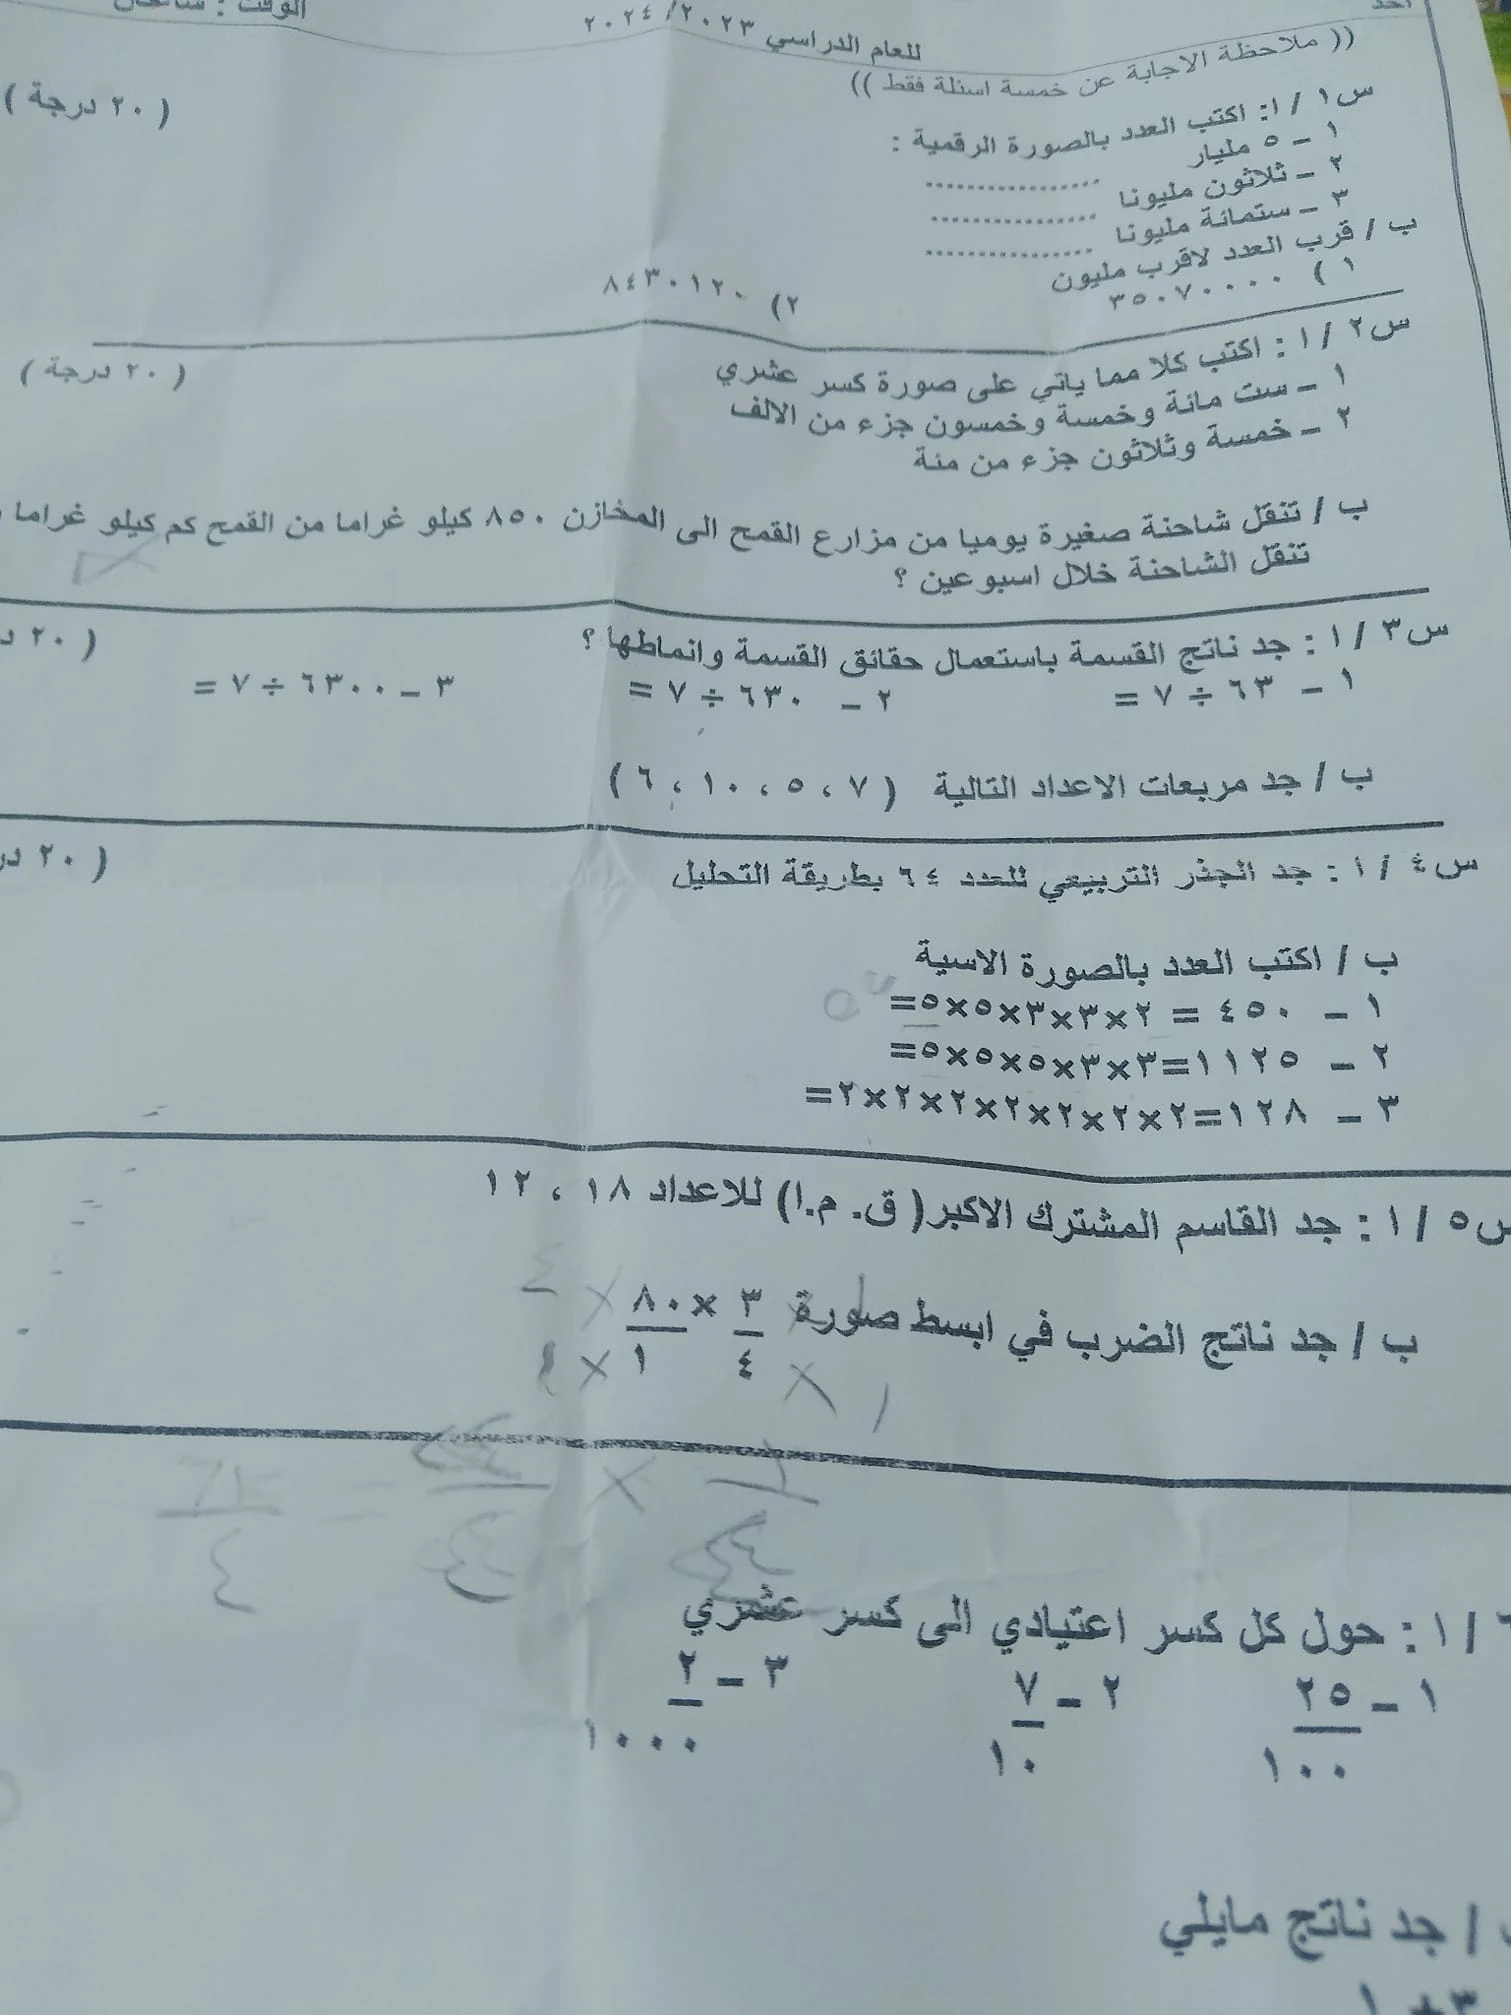 الوقت : ساعتان
للعام الدراسي ٢٠٢٣/ ٢٠٢٤
(( ملاحظة الاجابة عن خمسة اسئلة فقط ))
س١ / ا: اكتب العدد بالصورة الرقمية : ( ٢٠ درجة )
١ – ٥ مليار ................
٢ – ثلاثون مليونا ................
٣ – ستمائة مليونا ................
ب / قرب العدد لاقرب مليون
١ ) ٣٥٠٧٠٠٠٠ ٢) ٨٤٣٠١٢٠
س٢ / ا : اكتب كلا مما ياتي على صورة كسر عشري ( ٢٠ درجة )
١ – ست مائة وخمسة وخمسون جزء من الالف
٢ – خمسة وثلاثون جزء من مئة
ب / تنقل شاحنة صغيرة يوميا من مزارع القمح الى المخازن ٨٥٠ كيلو غراما من القمح كم كيلو غراما
تنقل الشاحنة خلال اسبوعين ؟
س٣ / ا : جد ناتج القسمة باستعمال حقائق القسمة وانماطها ؟ ( ٢٠ د
١ – ٦٣ ÷ ٧ = ٢ – ٦٣٠ ÷ ٧ = ٣ – ٦٣٠٠ ÷ ٧ =
ب / جد مربعات الاعداد التالية ( ٧ ، ٥ ، ١٠ ، ٦ )
س٤ / ا : جد الجذر التربيعي للعدد ٦٤ بطريقة التحليل ( ٢٠ در
ب / اكتب العدد بالصورة الاسية
١ – ٤٥٠ = ٢×٣×٣×٥×٥=
٢ – ١١٢٥=٣×٣×٥×٥×٥=
٣ – ١٢٨=٢×٢×٢×٢×٢×٢×٢=
س٥ / ا : جد القاسم المشترك الاكبر( ق. م.ا) للاعداد ١٨ ، ١٢
ب / جد ناتج الضرب في ابسط صورة ٣/٤ × ٨٠/١
٦ / ا : حول كل كسر اعتيادي الى كسر عشري
١ – ٢٥/١٠٠ ٢ – ٧/١٠ ٣ – ٢/١٠٠٠
/ جد ناتج مايلي